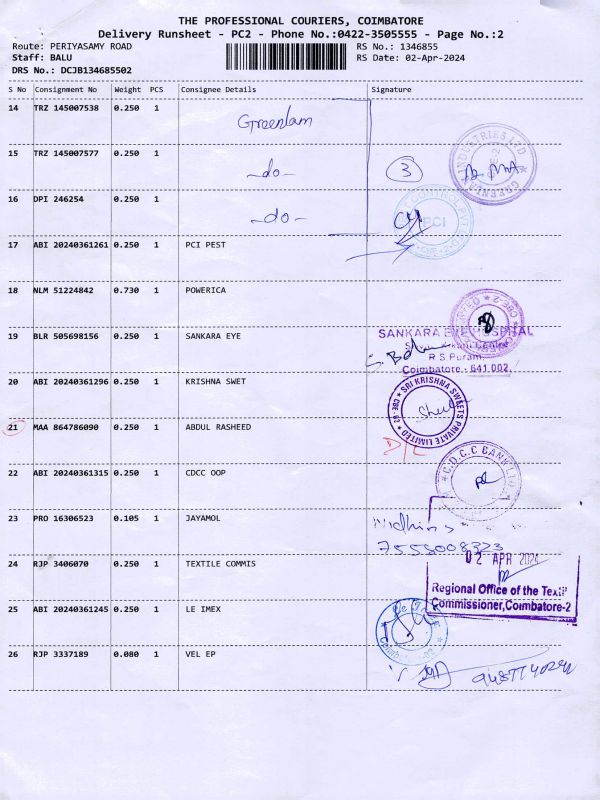 THE PROFESSIONAL COURIERS, COIMBATORE
Delivery Runsheet - PC2 - Phone No.:0422-3505555 - Page No.:2
Route: PERIYASAMY ROAD RS No.: 1346855
Staff: BALU RS Date: 02-Apr-2024
DRS No.: DCJB134685502
S No Consignment No Weight PCS Consignee Details Signature
14 TRZ 145007538 0.250 1 Greenlam
15 TRZ 145007577 0.250 1 -do- 3
GREENLAM INDUSTRIES LTD
16 DPI 246254 0.250 1 -do-
PCI
17 ABI 20240361261 0.250 1 PCI PEST
18 NLM 51224842 0.730 1 POWERICA
19 BLR 505698156 0.250 1 SANKARA EYE
SANKARA EYE HOSPITAL
R S Puram,
Coimbatore - 641 002.
20 ABI 20240361296 0.250 1 KRISHNA SWET
SRI KRISHNA SWEETS PRIVATE LIMITED
CBE-02
21 MAA 864786090 0.250 1 ABDUL RASHEED D/L
22 ABI 20240361315 0.250 1 CDCC OOP
C.D.C.C BANK LTD
23 PRO 16306523 0.105 1 JAYAMOL
7558008323
02 APR 2024
24 RJP 3406070 0.250 1 TEXTILE COMMIS
Regional Office of the Textile
Commissioner,Coimbatore-2
25 ABI 20240361245 0.250 1 LE IMEX
26 RJP 3337189 0.080 1 VEL EP